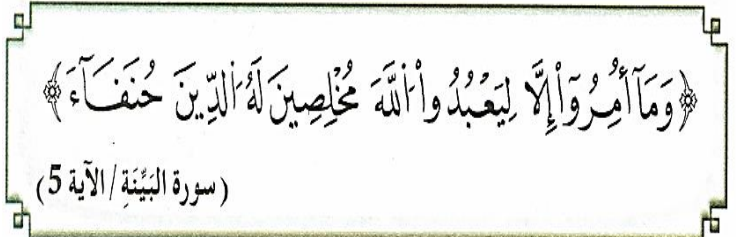 ﴿وَمَآ أُمِرُوٓاْ إِلَّا لِيَعْبُدُواْ اَللَّهَ مُخْلِصِينَ لَهُ اَلدِّينَ حُنَفَآءَ﴾
(سورة البَيِّنَةِ / الآية 5)